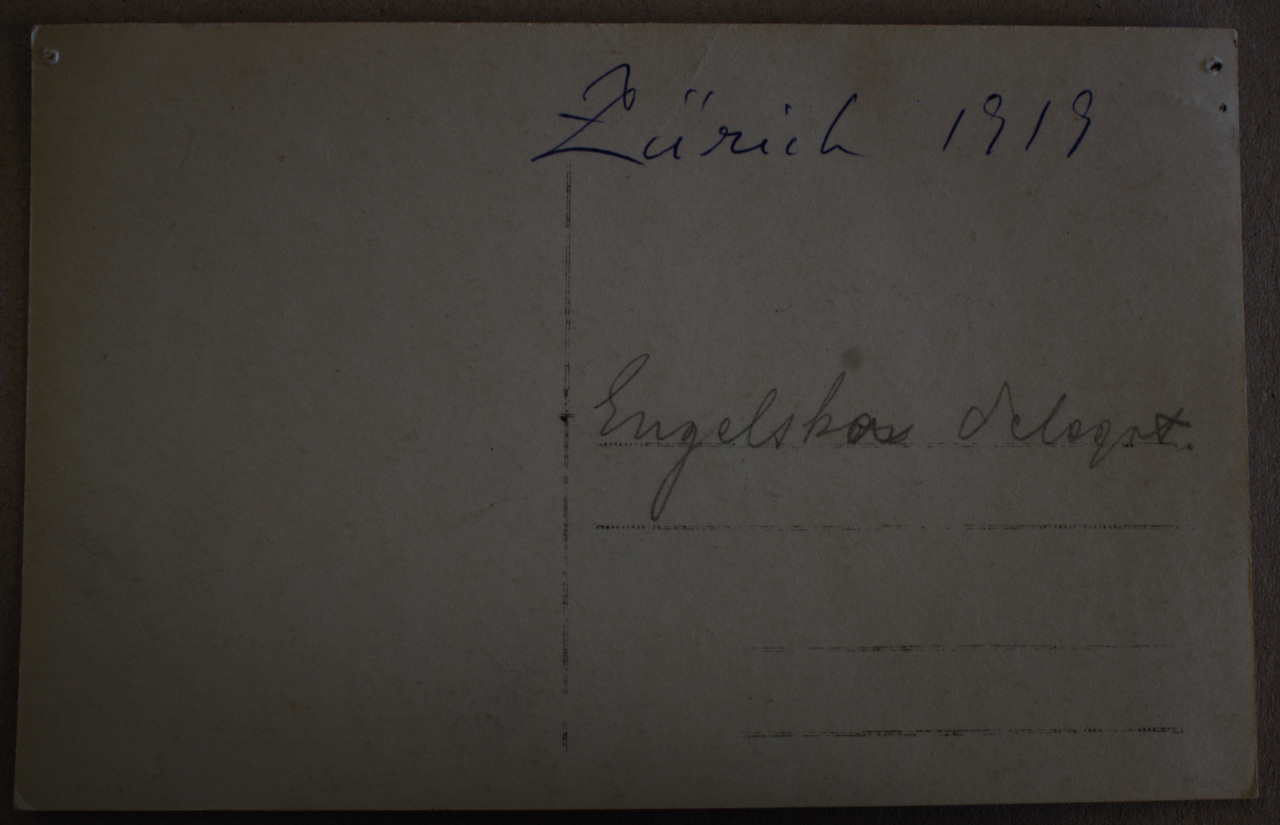 Zürich 1919
Engelska delegat.